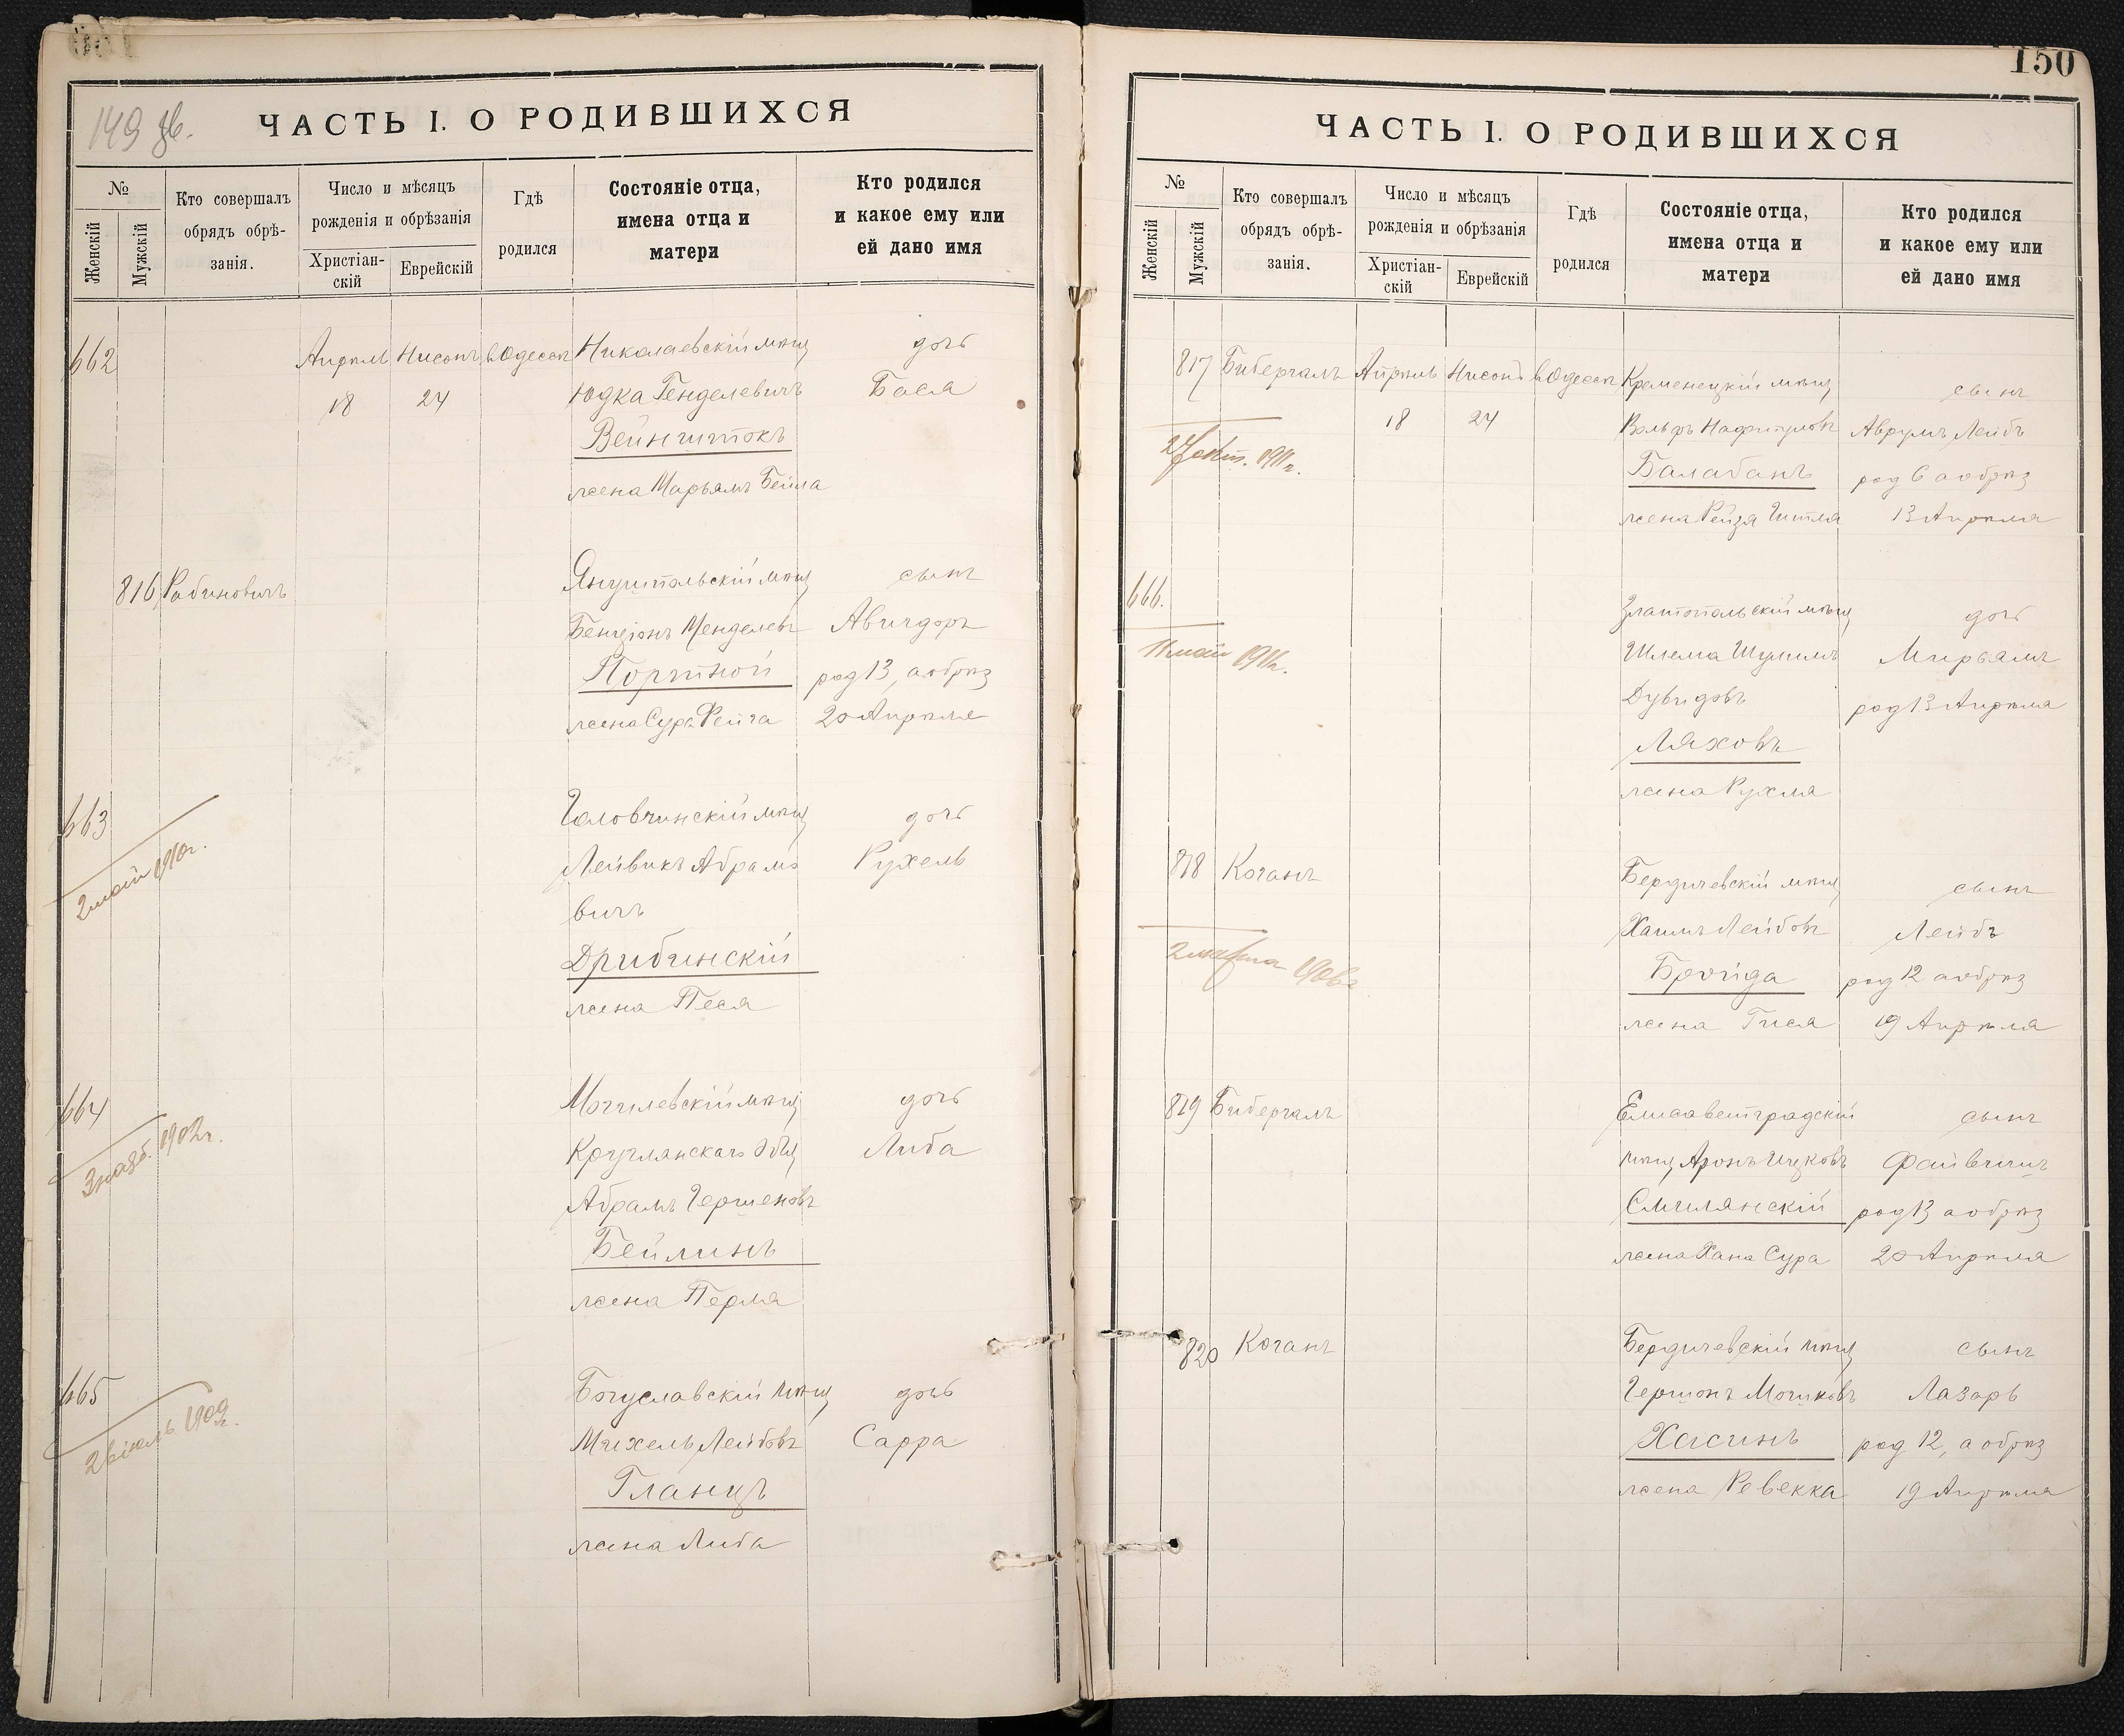 149 об.
ЧАСТЬ I. О РОДИВШИХСЯ
№
Женскій
Мужскій
Кто совершалъ
обрядъ обрѣ-
занія.
Число и мѣсяцъ
рожденія и обрѣзанія
Христіан-
скій
Еврейскій
Гдѣ
родился
Состояніе отца,
имена отца и
матери
Кто родился
и какое ему или
ей дано имя
662 Апрель Нисонъ в Одессе Николаевскій мѣщ дочь
18 24 Юдка Генделевичъ Бася
Вейнштокъ
жена Марьямъ Бейла
816 Рабиновичъ Янушпольскій мѣщ сынъ
Бенціонъ Менделевъ Авигдоръ
Портной род 13, а обрѣз
жена Сура Фейга 20 Апрѣля
663 Головчинскій мѣщ дочь
Лейвикъ Абрамо Рухель
вичъ
2 май 1910г.
Дрибинскій
жена Песя
664 Могилевскій мѣщ дочь
Круглянскаго Общ Либа
1902г.
Абрамъ Гершеновъ
Бейлинъ
жена Перля
665 Богуславскій мѣщ дочь
Михель Лейбовъ Сарра
1909г.
Гланцъ
жена Либа
150
ЧАСТЬ I. О РОДИВШИХСЯ
№
Женскій
Мужскій
Кто совершалъ
обрядъ обрѣ-
занія.
Число и мѣсяцъ
рожденія и обрѣзанія
Христіан-
скій
Еврейскій
Гдѣ
родился
Состояніе отца,
имена отца и
матери
Кто родился
и какое ему или
ей дано имя
817 Бибергалъ Апрѣль Нисонъ в Одессе Кременецкій мѣщ сынъ
18 24 Вольфъ Нафтуловъ Аврумъ Лейбъ
1911г.
Балабанъ род 6 а обрѣз
жена Рейзя Гитля 13 Апрѣля
666. Златопольскій мѣщ дочь
Шлема Шулимъ Мирьямъ
11 май 1911г.
Дувидовъ род 13 Апрѣля
Ляховъ
жена Рухля
818 Коганъ Бердичевскій мѣщ сынъ
Хаимъ Лейбовъ Лейбъ
2 марта 1906г
Бройда род 12 а обрѣз
жена Гися 19 Апрѣля
819 Бибергалъ Елисаветградскій сынъ
мѣщ Аронъ Ицковъ Файвишъ
Смилянскій род 13 а обрѣз
жена Хана Сура 20 Апрѣля
820 Коганъ Бердичевскій мѣщ сынъ
Гершонъ Мошковъ Лазарь
Хасинъ род 12, а обрѣз
жена Ревекка 19 Апрѣля